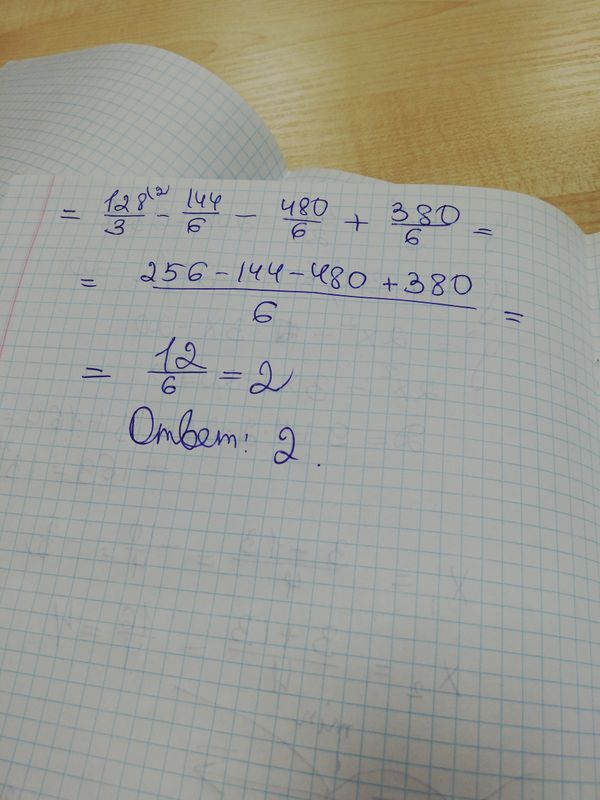 = 128\2/3 - 144/6 - 480/6 + 380/6 =
= 256-144-480+380/6 =
= 12/6 = 2
Ответ: 2.